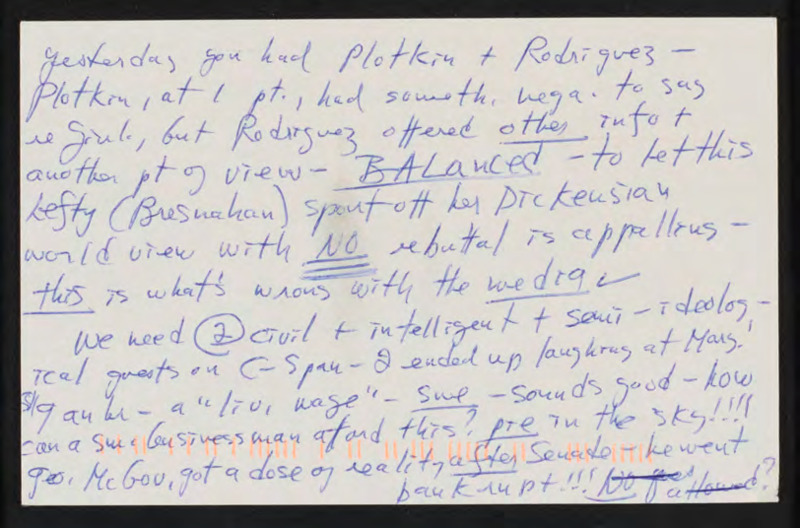 yesterday you had Plotkin + Rodriguez –
Plotkin, at 1 pt., had someth. nega. to say
re Giuli, but Rodriguez offered other info +
another pt of view – BALanced – to let this
Lefty (Bresnahan) spout off her Dickensian
world view with NO rebuttal is appalling –
this is what's wrong with the media ✓
We need 2 civil + intelligent + semi-ideolog-
ical guests on C-Span – I ended up laughing at Marg.'
$9 an hr – a "liv. wage" – sure – sounds good – how
can a sm. businessman afford this? pie in the sky!!!!
Geo. McGov. got a dose of reality after Senate – he went
bankrupt!!! NO allowed?